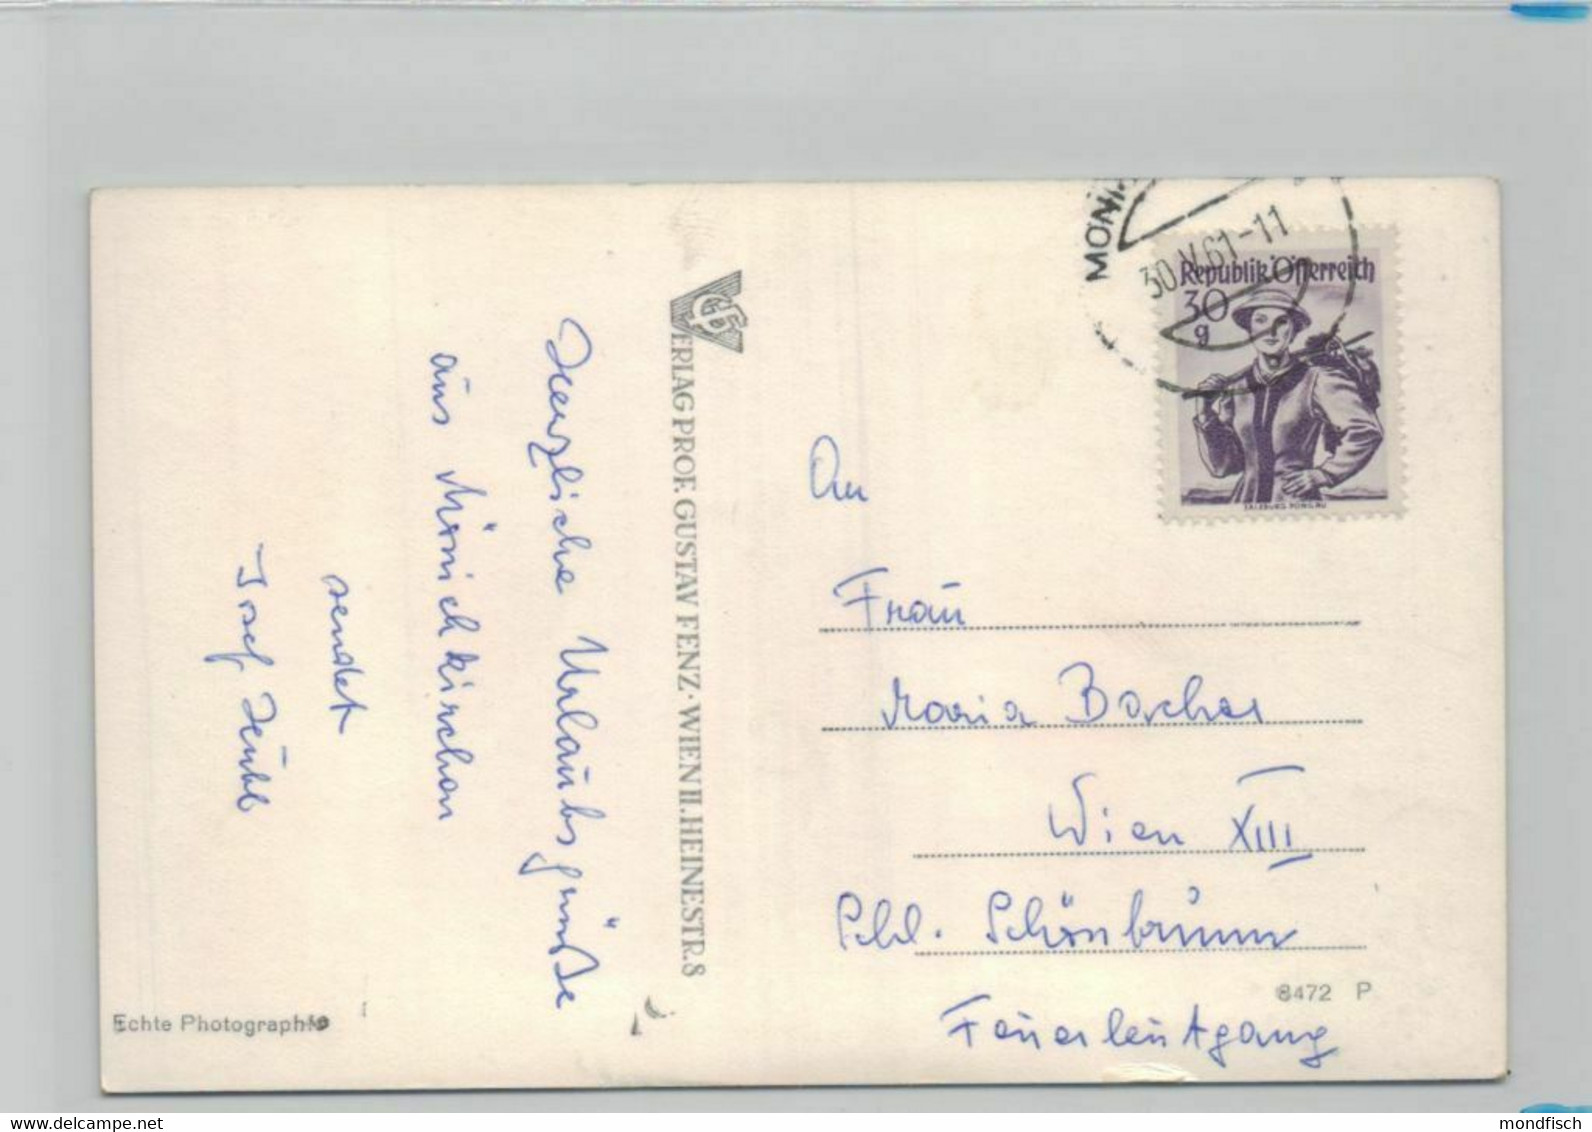 Herzliche Urlaubsgrüße
aus Mönichkirchen
sendet
Josef
VERLAG PROF. GUSTAV FENZ · WIEN II. HEINESTR. 8
Echte Photographie
MONI
30.V.61-11
Republik Österreich
30
g
SALZBURG, PONGAU
An
Frau
Maria Bacher
Wien XIII
Schl. Schönbrunn
Feuerleutgang
8472 P
mondfisch